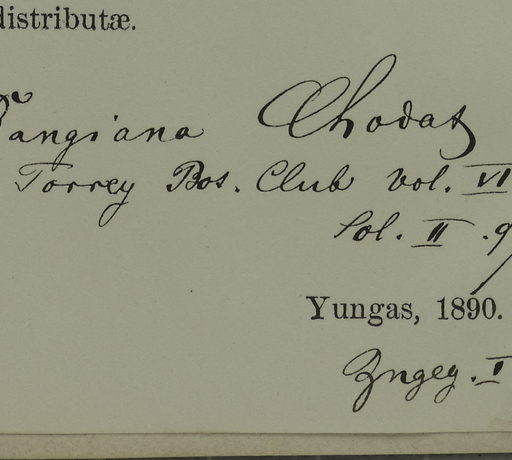 distributæ.
Bangiana Chodat
Torrey Bot. Club vol. VI
Pol. II. 9
Yungas, 1890.